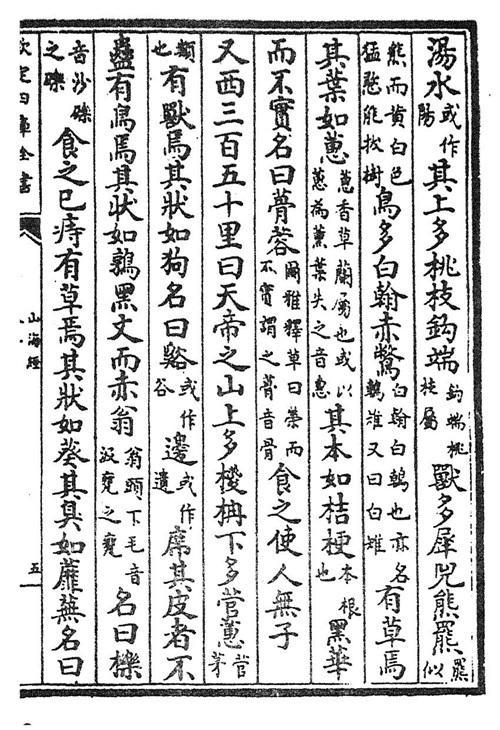 湯水或作陽其上多桃枝鈎端鈎端桃枝屬獸多犀兕熊羆羆似
熊而黄白色猛憨能拔樹鳥多白翰赤鷩白翰白鵫也亦名鵫雉又曰白雉有草焉
其葉如蕙蕙香草蘭屬也或以蕙為薰葉失之音惠其本如桔梗本根也黑華
而不實名曰蓇蓉爾雅釋草曰榮而不實謂之蓇音骨食之使人無子
又西三百五十里曰天帝之山上多椶枏下多菅蕙菅茅
類也有獸焉其狀如狗名曰谿或作谷邊或作遺席其皮者不
蠱有鳥焉其狀如鶉黑文而赤翁翁頭下毛音汲甕之甕名曰櫟
音沙礫之礫食之已痔有草焉其狀如葵其臭如蘼蕪名曰
欽定四庫全書
山海經
五